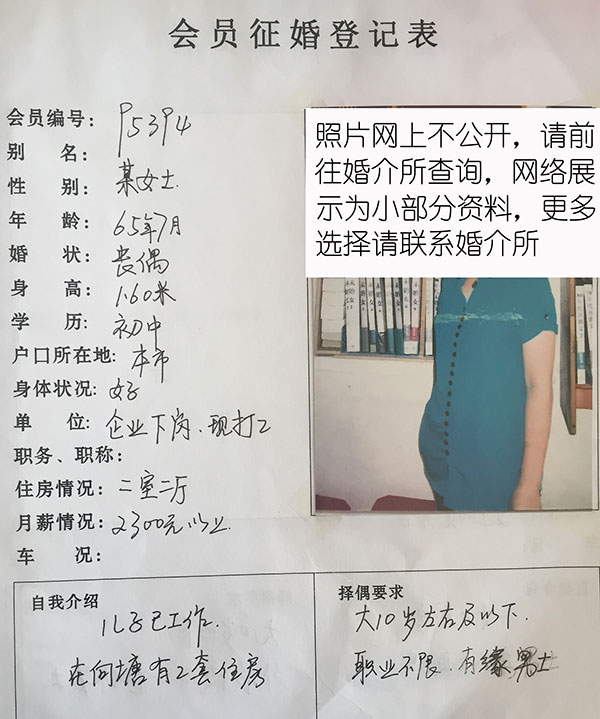 会员征婚登记表
会员编号: P5394
别 名: 某女士
性 别:
年 龄: 65年7月
婚 状: 丧偶
身 高: 1.60米
学 历: 初中
户口所在地: 本市
身体状况: 好
单 位: 企业下岗、现打工
职务、职称:
住房情况: 二室二厅
月薪情况: 2300元以上
车 况:
照片网上不公开，请前
往婚介所查询，网络展
示为小部分资料，更多
选择请联系婚介所
自我介绍
儿子已工作.
在向塘有2套住房
择偶要求
大10岁左右及以下.
职业不限.有缘男士